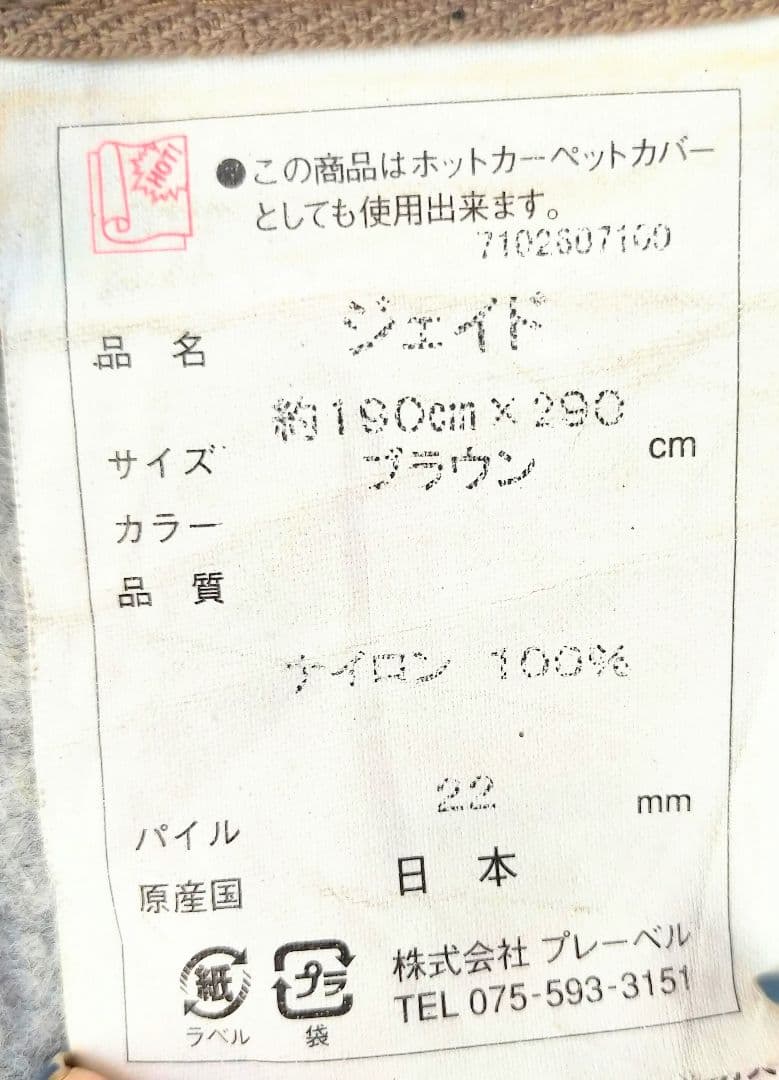 HOT!
●この商品はホットカーペットカバー
としても使用出来ます。
7102607100
品 名 ジェイド
サイズ 約190cm×290 cm
カラー ブラウン
品 質
ナイロン 100%
パイル 22 mm
原産国 日 本
紙 プラ 株式会社 プレーベル
ラベル 袋 TEL 075-593-3151